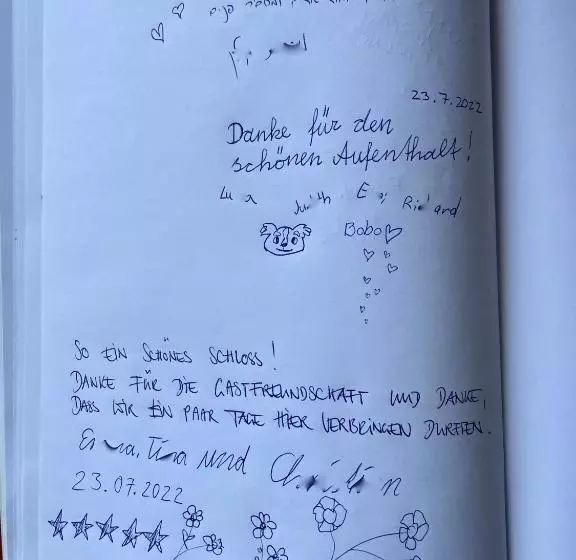 23.7.2022
Danke für den
schönen Aufenthalt!
Bobo
SO EIN SCHÖNES SCHLOSS!
DANKE FÜR DIE GASTFREUNDSCHAFT UND DANKE,
DASS WIR EIN PAAR TAGE HIER VERBRINGEN DURFTEN.
Tina und
23.07.2022